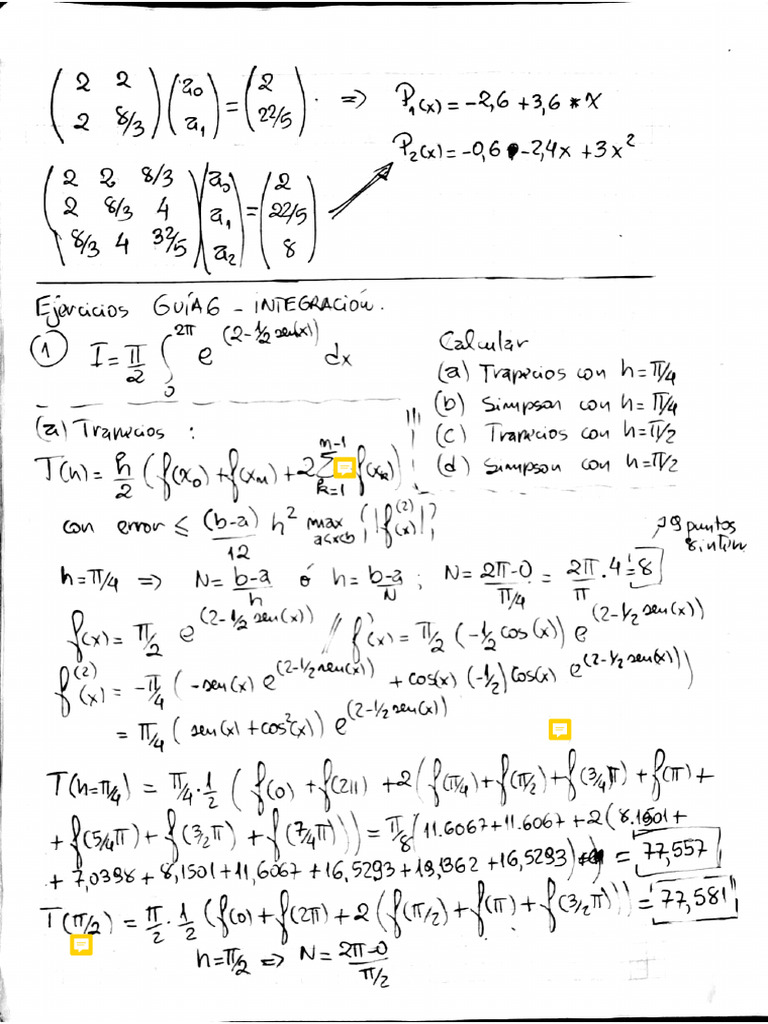 ( 2 2 ; 2 8/3 ) ( a₀ ; a₁ ) = ( 2 ; 22/5 ) . => P₁(x) = -2,6 + 3,6 * x
P₂(x) = -0,6 - 2,4x + 3x²
( 2 2 8/3 ; 2 8/3 4 ; 8/3 4 32/5 ) ( a₀ ; a₁ ; a₂ ) = ( 2 ; 22/5 ; 8 )
Ejercicios GUÍA 6 - INTEGRACIÓN.
① I = π/2 ∫₀^2π e^(2-1/2 sen(x)) dx
Calcular
(a) Trapecios con h = π/4
(b) Simpson con h = π/4
(c) Trapecios con h = π/2
(d) Simpson con h = π/2
(a) Trapecios :
T(h) = h/2 ( f(x₀) + f(xₙ) + 2 Σ_{k=1}^{n-1} f(xₖ) )
con error ≤ (b-a)/12 h² max_{a≤x≤b} { |f⁽²⁾(x)| }
9 puntos
8 interv
h = π/4 => N = (b-a)/h ó h = (b-a)/N ; N = (2π-0)/(π/4) = 2π/π . 4 = 8
f(x) = π/2 e^(2-1/2 sen(x)) // f'(x) = π/2 (-1/2 cos(x)) e^(2-1/2 sen(x))
f⁽²⁾(x) = -π/4 ( -sen(x) e^(2-1/2 sen(x)) + cos(x) (-1/2) cos(x) e^(2-1/2 sen(x)) )
= π/4 ( sen(x) + cos²(x) ) e^(2-1/2 sen(x))
T(h=π/4) = π/4 . 1/2 ( f(0) + f(2π) + 2 ( f(π/4) + f(π/2) + f(3/4 π) + f(π) +
+ f(5/4 π) + f(3/2 π) + f(7/4 π) ) ) = π/8 ( 11.6067 + 11.6067 + 2 ( 8.1501 +
+ 7,0398 + 8,1501 + 11,6067 + 16,5293 + 19,1362 + 16,5293 ) ) = 77,557
T(π/2) = π/2 . 1/2 ( f(0) + f(2π) + 2 ( f(π/2) + f(π) + f(3/2 π) ) ) = 77,581
h = π/2 => N = (2π-0)/(π/2)